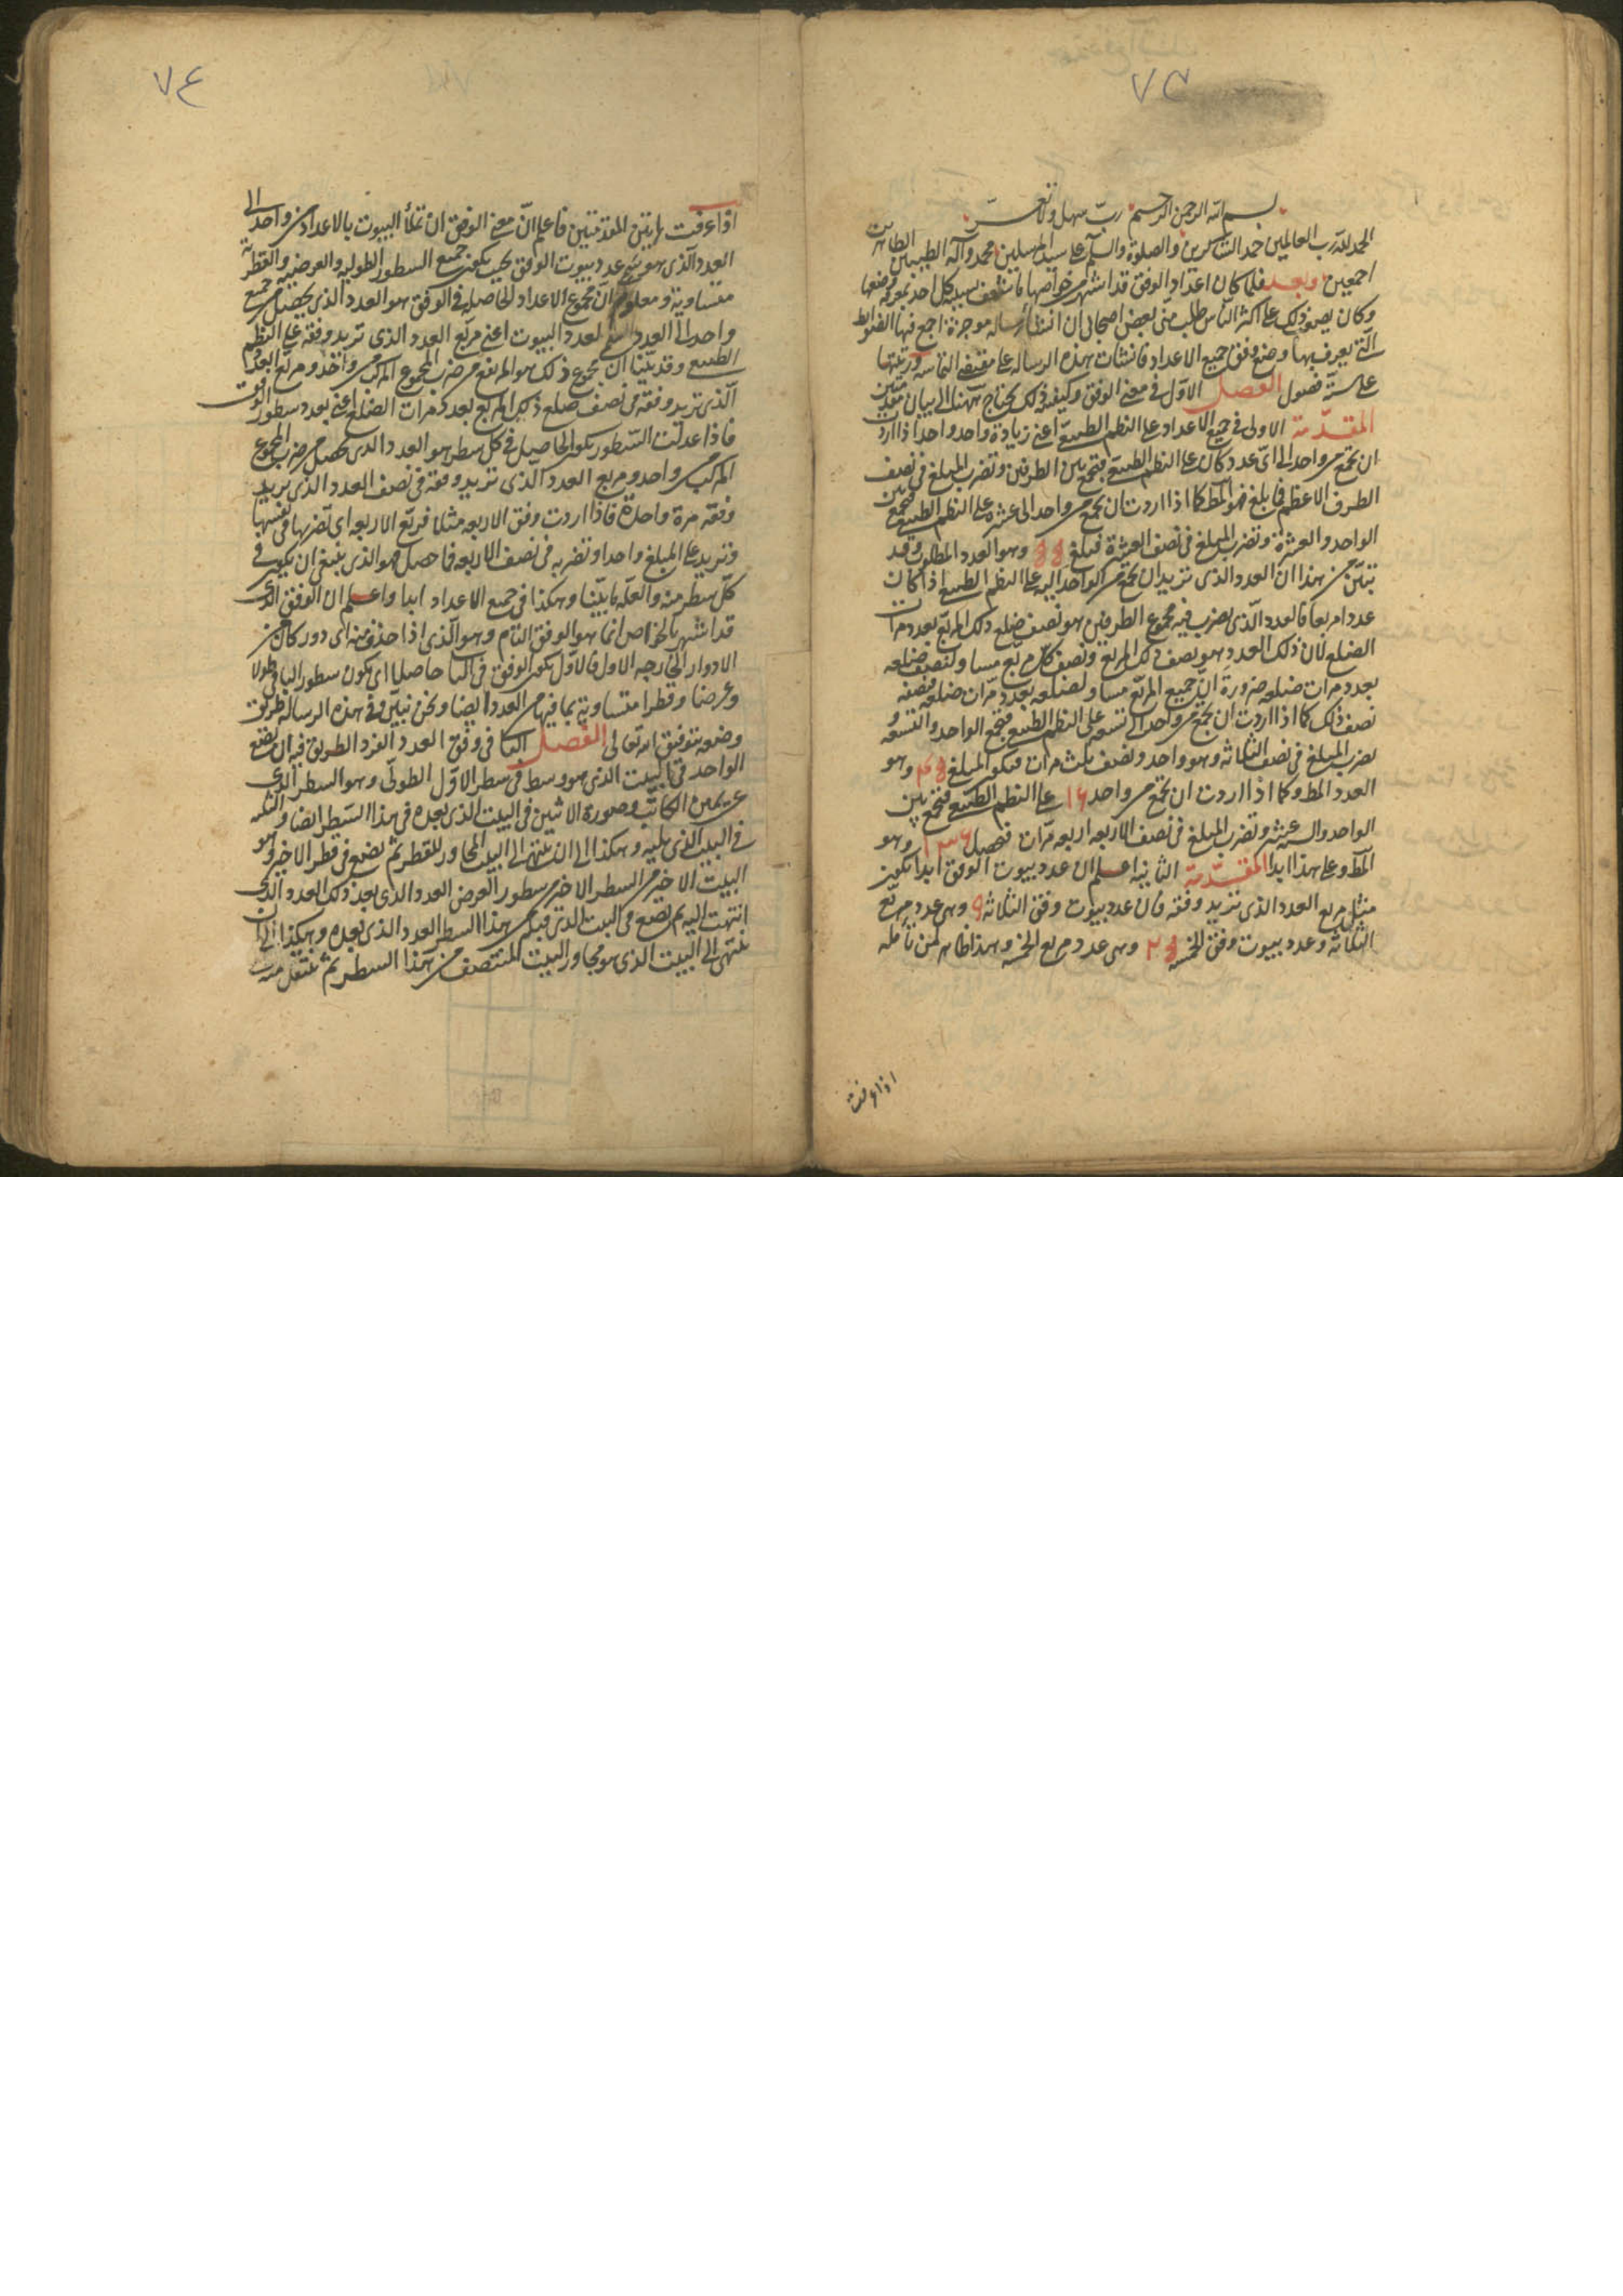 ٧٣
بسم الله الرحمن الرحيم رب سهل ولا تعسر
الحمد لله رب العالمين حمد الشاكرين والصلوة والسلم على سيد المرسلين محمد وآله الطيبين الطاهرين
اجمعين وبعد فلما كان اعداد الوفق قد اشتهر خواصها بسببه كل احد بمعرفة وضعها
وكان يصعب ذلك على اكثر الناس طلب منى بعض اصحابى ان انشأ رساله موجزة اجمع فيها الضوابط
التى يعرف بها وضع وفق جميع الاعداد فانشأت هذه الرساله على مقتضى التماسه ورتبتها
على ستة فصول الفصل الاول فى معنى الوفق وكيفيه ذلك يحتاج ههنا الى بيان مقدمتين
المقدمة الاولى فى جمع الاعداد على النظم الطبيعى اعنى زيادة واحد واحد اذا اردت
ان تجمع من واحد الى اى عدد كان على النظم الطبيعى فتجمع بين الطرفين وتضرب المبلغ فى نصف
الطرف الاعظم فما بلغ فهو المط كما اذا اردت ان تجمع من واحد الى عشره على النظم الطبيعى فتجمع بين
الواحد والعشرة وتضرب المبلغ فى نصف العشرة فبلغ ٥٥ وهو العدد المطلوب وقد
تبين من هذا ان العدد الذى تريد ان تجمع من الواحد اليه على النظم الطبيعى اذا كان
عددا مربعا فالعدد الذى يضرب فيه مجموع الطرفين هو نصف ضلع ذلك المربع بعدد مرات
الضلع لان ذلك العدد هو نصف ذلك المربع ونصف كل مربع مساو لنصف ضلعه
بعدد مرات ضلعه ضرورة ان جميع المربع مساو لضلعه بعدد مرات ضلعه فنصفه
نصف ذلك كما اذا اردت ان تجمع من واحد الى تسعه على النظم الطبيعى فتجمع الواحد والتسعه و
تضرب المبلغ فى نصف الثلاثه وهو واحد ونصف ثلث مرات فيكون المبلغ ٤٥ وهو
العدد المط وكما اذا اردت ان تجمع من واحد ١٦ على النظم الطبيعى فتجمع بين
الواحد والستة عشر وتضرب المبلغ فى نصف الاربعه اربعه مرات فتحصل ١٣٦ وهو
المط وعلى هذا ابدا المقدمة الثانية اعلم ان عدد بيوت الوفق ابدا تكون
مثل مربع العدد الذى تريد وفقه فان عدد بيوت وفق الثلاثة ٩ وهى عدد مربع
الثلاثة وعدد بيوت وفق الخمسه ٢٥ وهى عدد مربع الخمسه وهذا ظاهر لمن تأمله
اذا عرفت
٧٤
اذا عرفت هاتين المقدمتين فاعلم ان معنى الوفق ان تملأ البيوت بالاعداد من واحد الى
العدد الذى هو عدد بيوت الوفق بحيث تكون جميع السطور الطوليه والعرضيه والقطرية
متساوية ومعلوم ان مجموع الاعداد الحاصله فى الوفق هو العدد الذى يحصل من جمع
واحد الى العدد لعدد البيوت اعنى مربع العدد الذى تريد وفقه على النظم
الطبيعى وقد بينا ان مجموع ذلك هو المرتفع من ضرب المجموع المركب من واحد ومربع العدد
الذى تريد وفقه فى نصف ضلع ذلك المربع بعدد مرات الضلع اعنى بعدد سطور الوفق
فاذا عدلت السطور يكون الحاصل فى كل سطر هو العدد الذى يحصل من ضرب المجموع
المركب من واحد ومربع العدد الذى تريد وفقه فى نصف العدد الذى تريد
وفقه مرة واحدة فاذا اردت وفق الاربعه مثلا فربع الاربعه اى تضربها فى نفسها
وتزيد على المبلغ واحدا وتضربه فى نصف الاربعه فما حصل فهو الذى ينبغى ان يكون فى
كل سطر منه والعلة ما بينا وهكذا فى جميع الاعداد ابدا واعلم ان الوفق الذى
قد اشتهر بالخواص انما هو الوفق التام وهو الذى اذا حذف منه اى دور كان من
الادوار الخارجه الاول فالاول يكون الوفق فى الباقى حاصلا اى يكون سطور الباقى طولا
وعرضا وقطرا متساوية بما فيها من العدد ايضا ونحن نبين فى هذه الرساله طريق
وضعه بتوفيق الله تعالى الفصل الثانى فى وفق العدد الفرد الطريق فيه ان تضع
الواحد فى البيت الذى هو وسط فى سطر الاول الطولى وهو السطر الذى
عن يمين الكاتب وصورة الاثنين فى البيت الذى بعده فى هذا السطر ايضا والثلثه
فى البيت الذى يليه وهكذا الى ان ينتهى الى البيت المجاور للقطر ثم تضع فى قطر الاخير وهو
البيت الاخير من السطر الاخير من سطور العرض العدد الذى بعد ذلك العدد الذى
انتهت اليه ثم تضع فى البيت الذى قبله من هذا السطر العدد الذى بعده وهكذا الى ان
ينتهى الى البيت الذى هو مجاور البيت المنتصف من هذا السطر ثم تنتقل منه